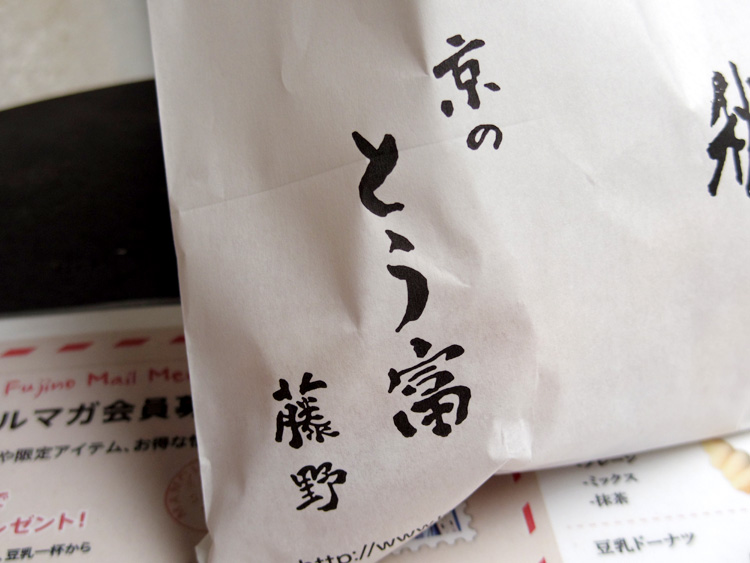 京の
とう富
藤野
http://www.
Fujino Mail Me
ルマガ会員募
や限定アイテム、お得な
レゼント!
豆乳一杯から
-プレーン
-ミックス
-抹茶
豆乳ドーナツ